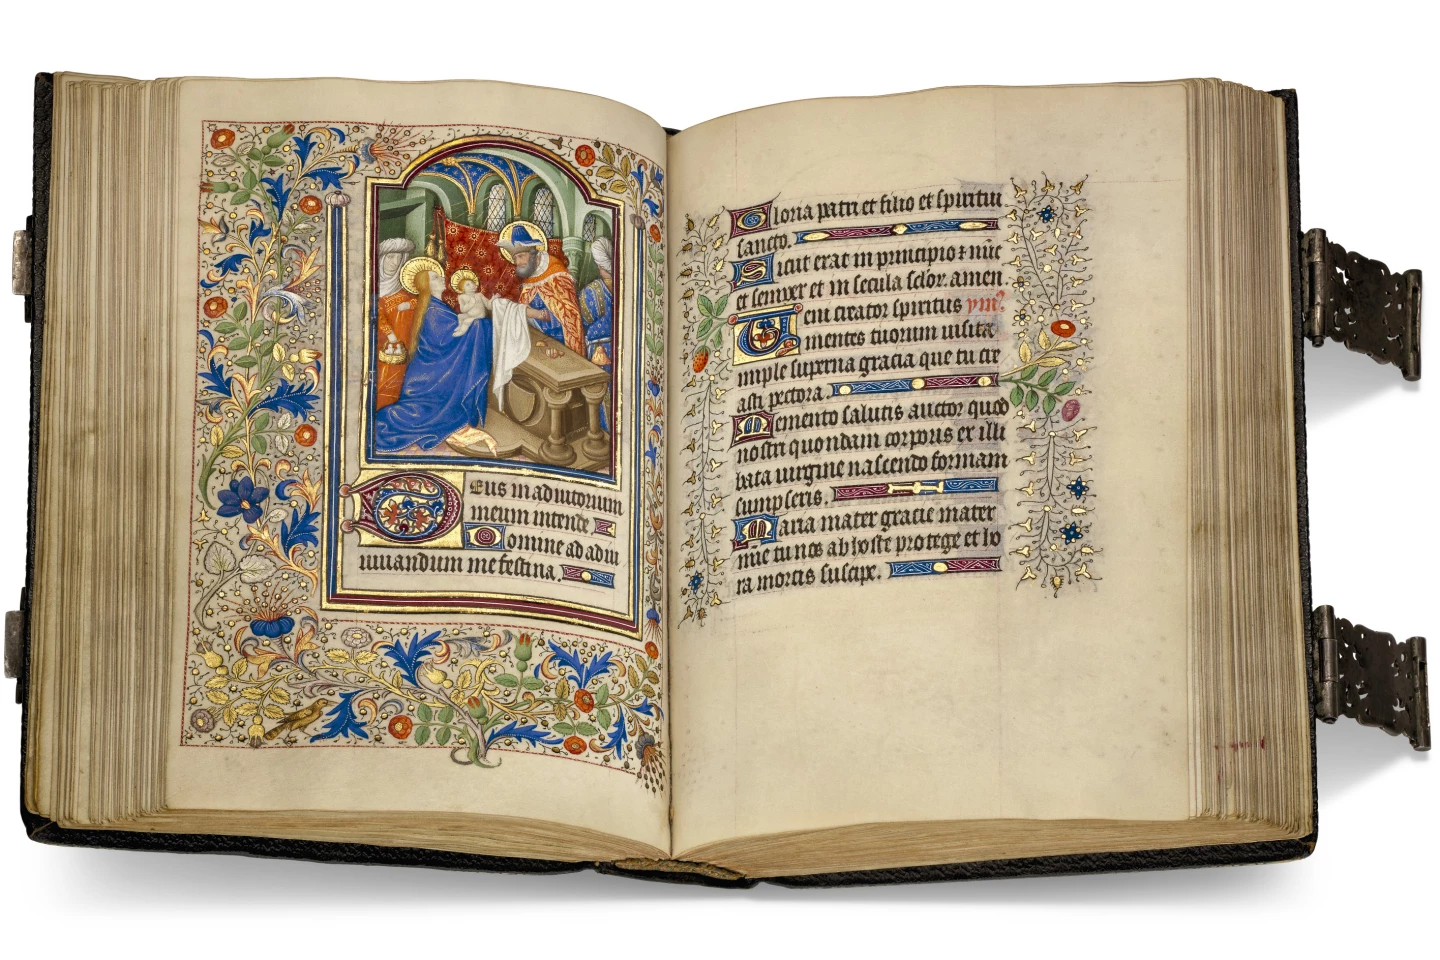 Deus in adiutorium
meum intende
Domine ad adiu
iuuandum me festina.
Gloria patri et filio et spiritui
sancto.
Sicut erat in principio et nũc
et semper et in secula sclor. amen.
Veni creator spiritus ym̃
mentes tuorum uisita
imple superna gracia que tu cre
asti pectora.
Memento salutis auctor quod
nostri quondam corporis ex illi
bata uirgine nascendo formam
sumpseris.
Maria mater gracie mater
mĩe tu nos ab hoste protege et ho
ra mortis suscipe.